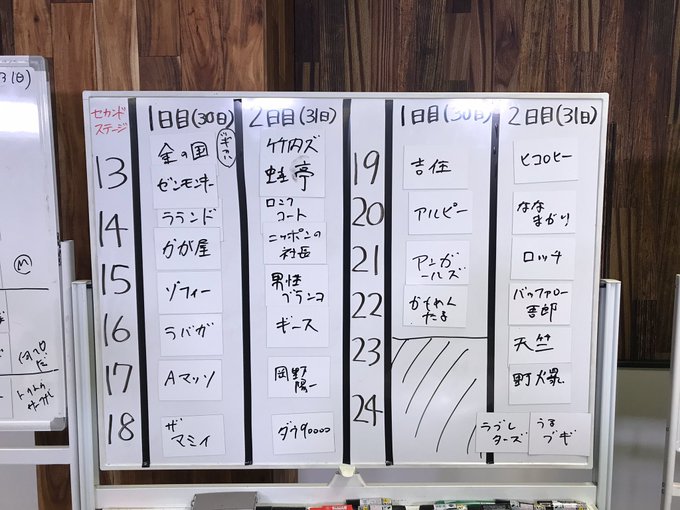 セカンド
ステージ
1日目(30日)
2日目(31日)
1日目(30日)
2日目(31日)
13
金の国
ゼンモンキー
竹内ズ
蛙亭
19
吉住
ヒコロヒー
14
ラランド
かが屋
ロング
コート
ニッポンの
社長
20
アルピー
なな
まがり
15
ゾフィー
男性
ブランコ
21
アンガ
ールズ
ロッチ
16
ラバガ
ギース
22
かもめん
たる
バッファロー
吾郎
17
Aマッソ
岡野
陽一
23
天竺
野火爆
18
ザ
マミィ
ダウ90000
24
ラブレ
ターズ
うる
ブギ
(日)
M
トクトク